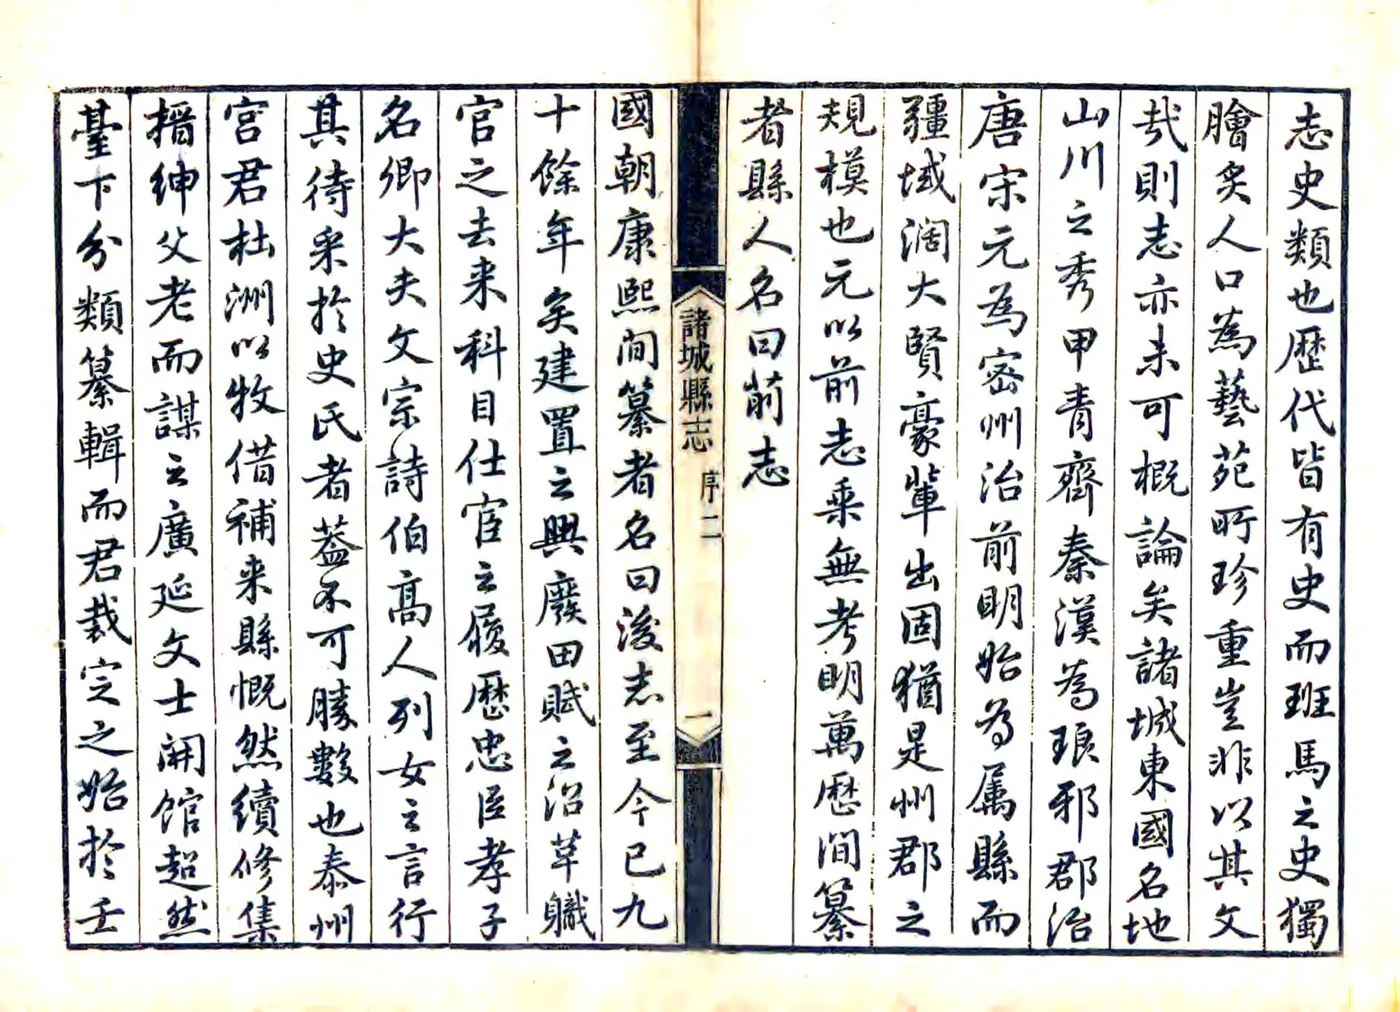 志史類也歷代皆有史而班馬之史獨
膾炙人口為藝苑所珍重豈非以其文
哉則志亦未可概論矣諸城東國名地
山川之秀甲青齊秦漢為琅邪郡治
唐宋元為密州治前明始為属縣而
疆域濶大賢豪輩出固猶是州郡之
規模也元以前志乘無考明萬歷間纂
者縣人名曰前志
諸城縣志
序二
一
國朝康熙间纂者名曰後志至今已九
十餘年矣建置之興廢田賦之沿革職
官之去来科目仕宦之履歷忠臣孝子
名卿大夫文宗詩伯高人列女之言行
其待采於史氏者葢不可勝數也泰州
宫君杜洲以牧借補来縣慨然續修集
搢紳父老而謀之廣延文士開館超然
臺下分類纂輯而君裁定之始於壬